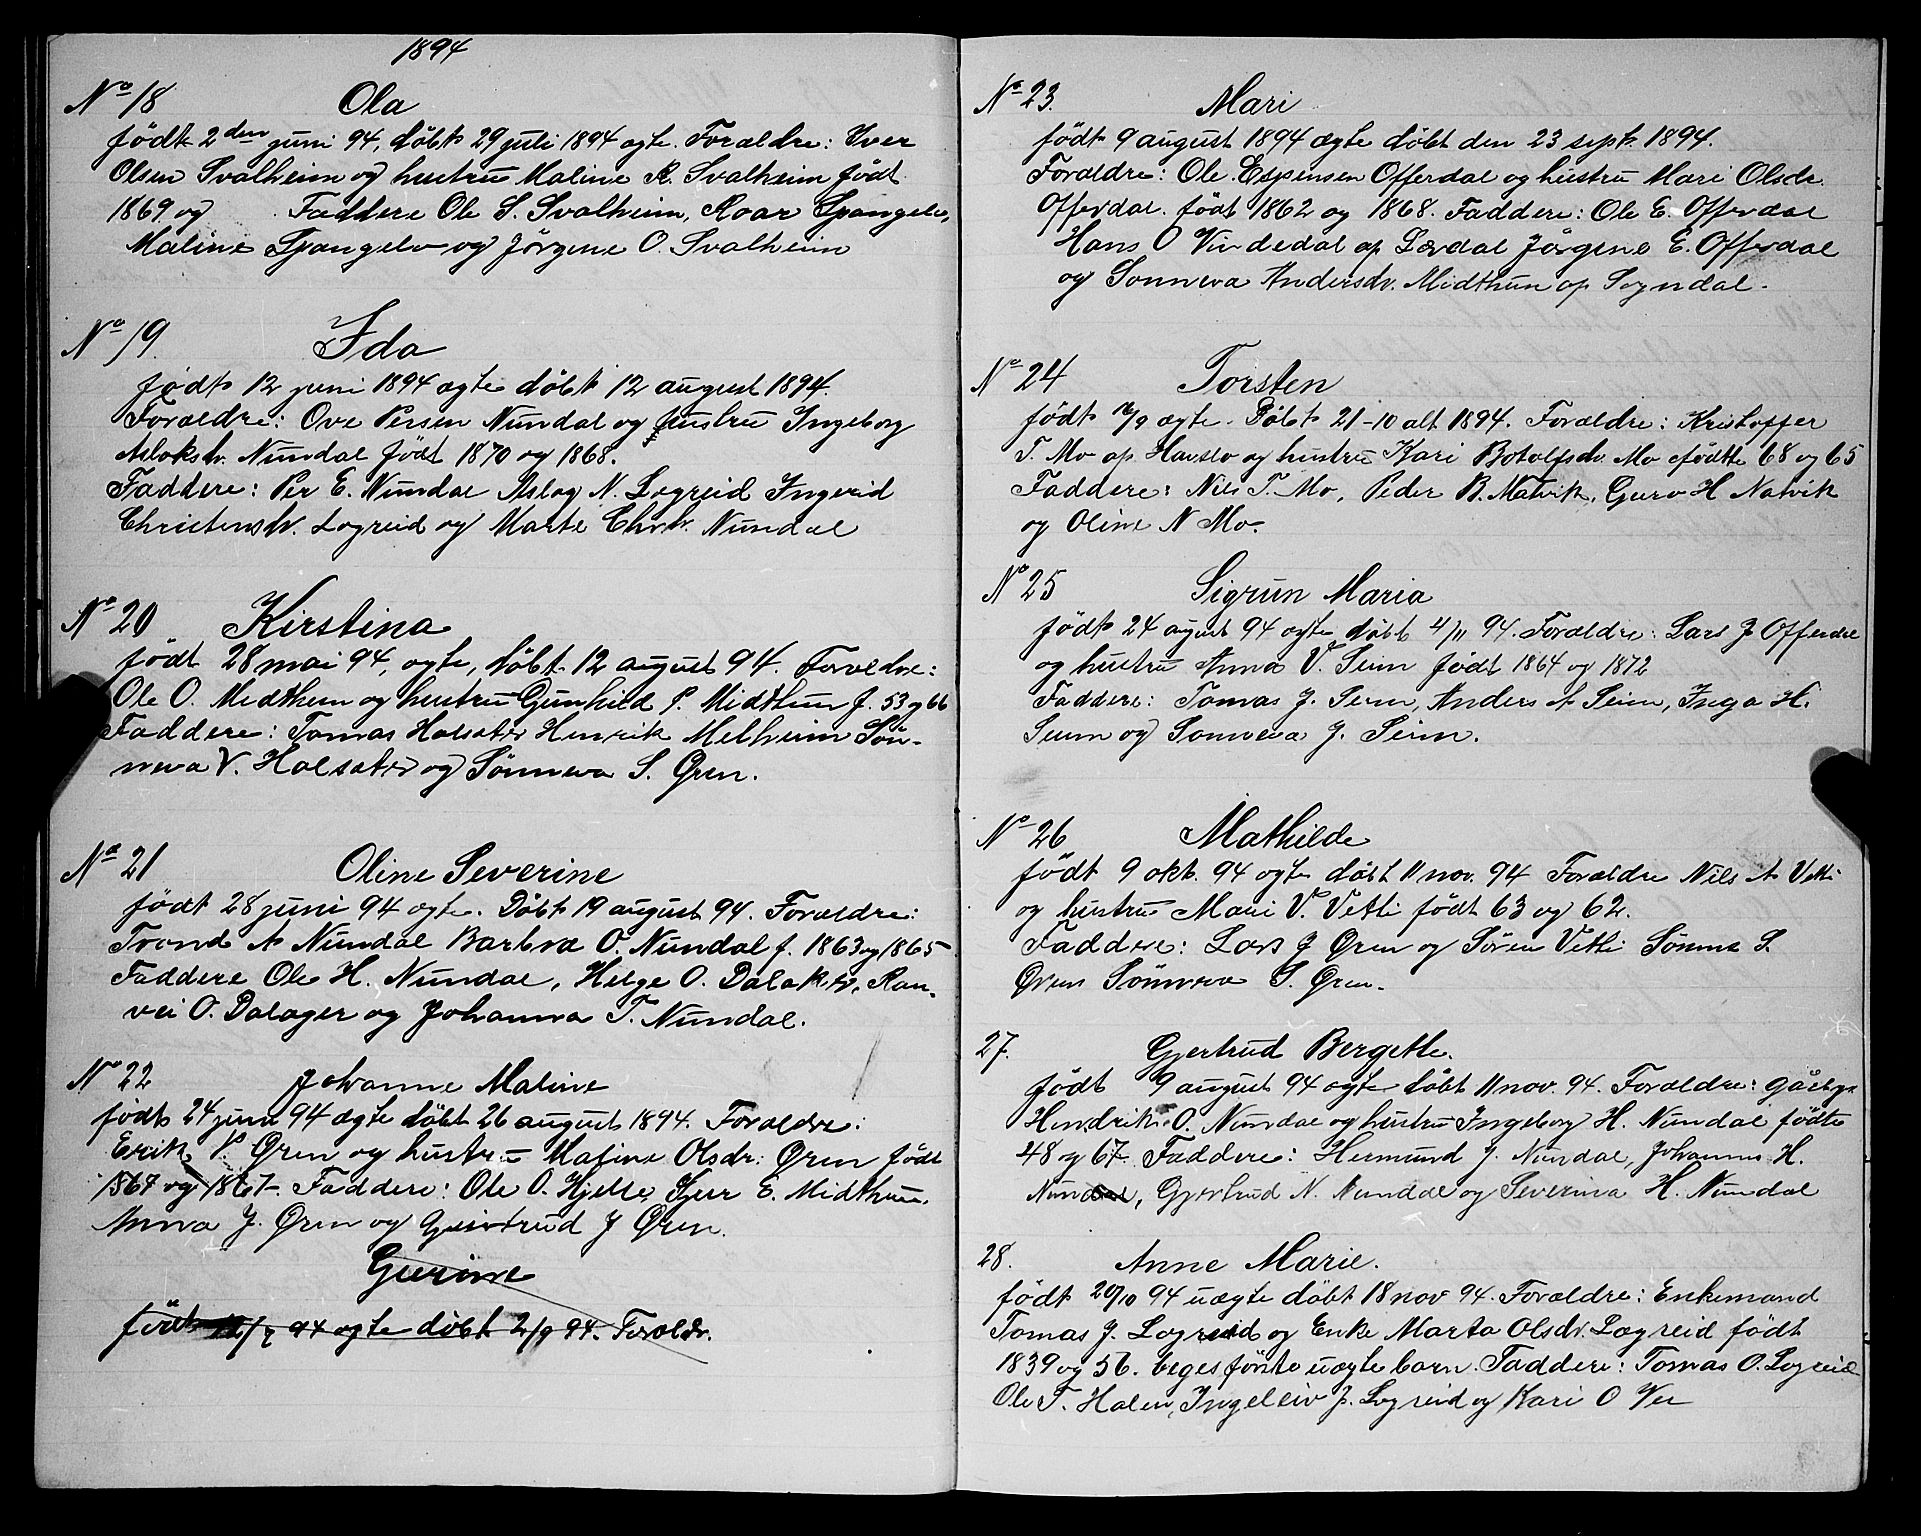 1894
No 18 Ola
født 2den juni 94, døbt 29 juli 1894 ægte. Forældre: Iver
Olsen Svalheim og hustru Maline R. Svalheim født
1869 og Faddere Ole S. Svalheim, Roar Spangelo,
Maline Spangelo og Jörgine O. Svalheim
No 19. Ida
født 12 juni 1894 ægte döbt 12 august 1894.
Forældre: Ove Persen Nundal og hustru Ingeborg
Aslaksdr. Nundal født 1870 og 1868.
Faddere: Per E. Nundal Aslag N. Lægreid Ingerid
Christensdr. Lægreid og Marte Chrdr. Nundal
No 20 Kirstina
født 28 mai 94, ægte, döbt 12 august 94. Forældre:
Ole O. Midthun og hustru Gunhild P. Midthun f. 53 og 66
Faddere: Tomas Holsæter Henrik Melheim Sön-
neva V. Holsæter og Sönneva S. Øren.
No 21 Oline Severine
födt 28 juni 94 ægte. Döbt 19 august 94. Forældre:
Trond A Nundal Barbra O. Nundal f. 1863 og 1865
Faddere Ole H. Nundal, Helge O. Dalaker, Ran-
vei O. Dalager og Johanna T. Nundal.
No 22 Johanne Maline
född 24 juni 94 ægte döbt 26 august 1894. Forældre:
Erik P. Øren og hustru Maline Olsdr. Øren födt
1867 og 1867. Faddere: Ole O. Hjelle, Sjur E. Midthun,
Anna J. Øren og Gjertrud J Øren.
Gurine
födt 12/7 94 ægte döbt 2/9 94. Foreldr.
No 23. Mari
født 9 august 1894 ægte døbt den 23 sept. 1894.
Forældre: Ole Espensen Offerdal og hustru Mari Olsdr.
Offerdal. født 1862 og 1868. Faddere: Ole E. Offerdal
Hans O Vindedal af Lærdal Jörgine E. Offerdal
og Sönneva Andersdr. Midthun af Sogndal.
No 24 Torsten
född 16/9 ægte. Döbt 21-10 alt 1894. Forældre: Kristoffer
T. Mo af Hauslo og hustru Kari Botolfsdr. Mo födte 68 og 65
Faddere: Nils T. Mo, Peder B. Natvik, Guro H Natvik
og Oline N Mo.
No 25 Sigrun Maria
födt 24 august 94 ægte döbt 4/11 94. Forældre: Lars J Offerdal
og hustru Anna V. Seim födt 1864 og 1872
Faddere: Tomas J. Seim, Anders A Seim, Inga H.
Seim og Sönneva J. Seim.
No 26 Mathilde
födt 9 okt. 94 ægte döbt 11 nov. 94 Forældre Nils A Vetti
og hustru Mari V. Vetti födt 63 og 62.
Faddere: Lars J Øren og Sören Vetti Sönneva S.
Øren Sönneva S. Øren.
27. Gjertrud Bergette.
födt 9 august 94 ægte döbt 11 nov. 94. Forældre:
Hendrik O. Nundal og hustru Ingeborg H. Nundal födte
48 og 67. Faddere: Hermund J. Nundal, Johannes H.
Nundal, Gjertrud N. Nundal og Severina H. Nundal
28. Anne Marie.
födt 20/10 94 uægte döbt 18 nov 94. Forældre: Enkemand
Tomas J. Lægreid og Enke Marta Olsdr. Lægreid födt
1839 og 56. begges förste uægte barn. Faddere: Tomas O. Lægreid
Ole T. Holen, Ingeleiv J. Lægreid og Kari O Ve